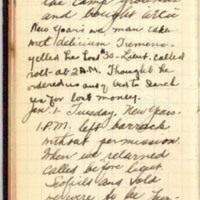 the camp grounds
and bought extra
New Year's eve man taken
met delirium Tremens
yelled has lost $30 - Lieut. called
roll at 2 A.M. Thought he
ordered us every bed to search
yes for lost money.
Jan. 1 Tuesday, New Years
1 P.M. left barrack
without permission.
When we returned
called before Lieut.
Scofield and told
we were to be